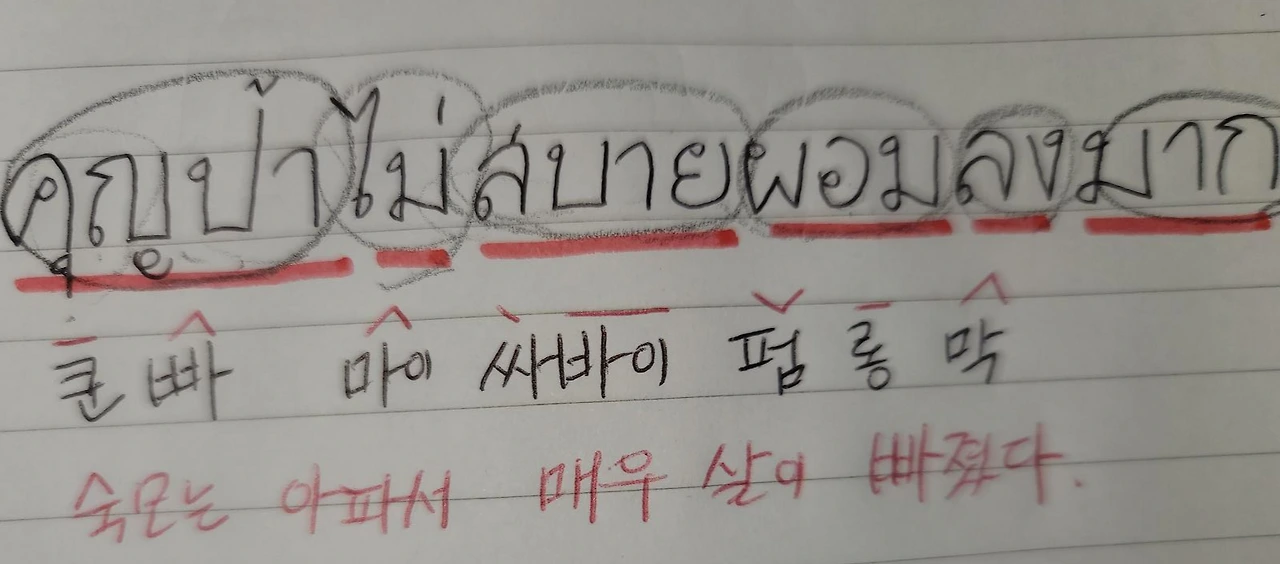 คุณป้าไม่สบายผอมลงมาก
쿤 빠 마이 싸바이 펌 롱 막
숙모는 아파서 매우 살이 빠졌다.